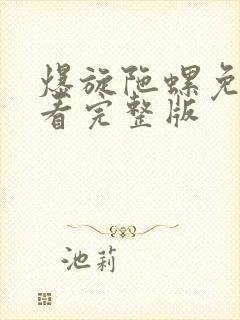 爆旋陀螺免
看完整版
池莉